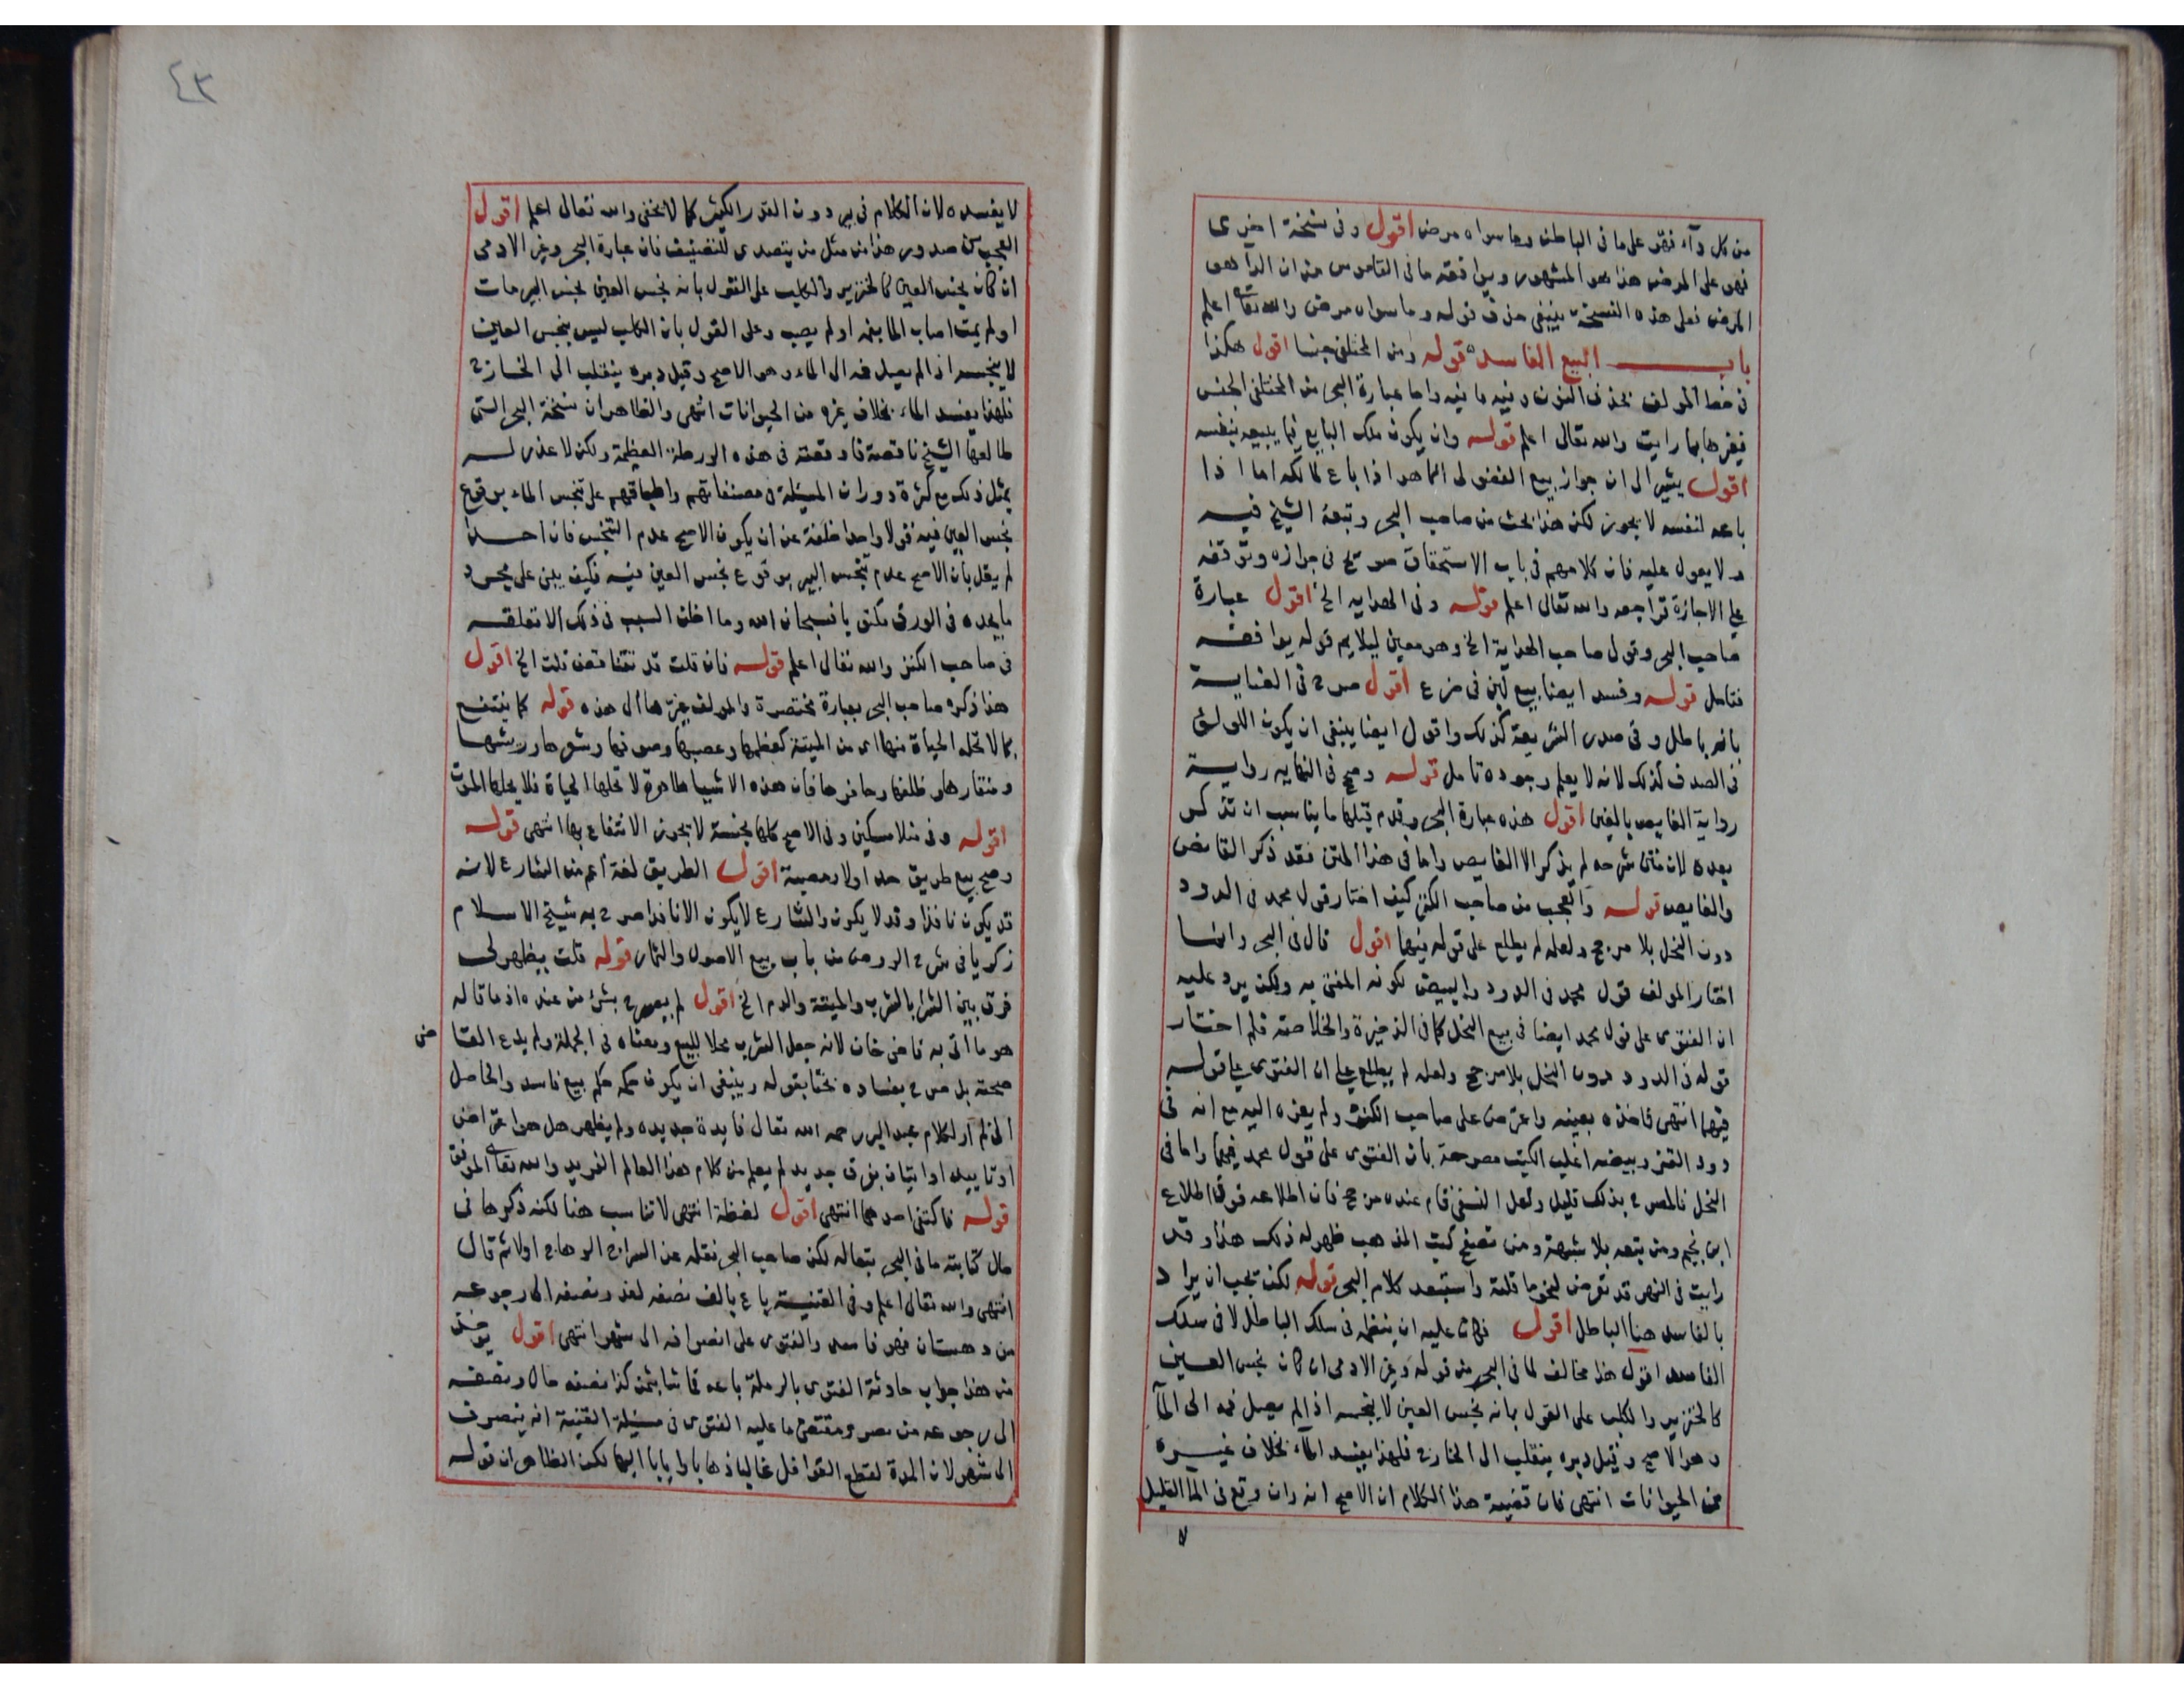 من كل دآء فهو على ما فى الباطن وما سواه مرض اقول وفى نسخة اخرى
فهو على المرض هذا هو المشهور ويوافقه ما فى القاموس من ان الدآ هو
المرض فعلى هذه النسخة ينبغى حذف قوله وما سواه مرض والله تعالى اعلم
باب البيع الفاسد قوله ومن المختلفى جنسا اقول هكذا
فى خط المولف بحذف النون وفيه ما فيه واما عبارة البحر من المختلفى الجنس
فغيرها بما رايت والله تعالى اعلم قوله وان يكون ملك البايع فيما يبيعه بنفسه
اقول يشير الى ان جواز بيع الفضولى انما هو اذا باع لمالكه اما اذا
باعه لنفسه لا يجوز لكن هذا بحث من صاحب البحر وتبعه الشيخ فيه
ولا يعول عليه فان كلامهم فى باب الاستحقاق صريح فى جوازه وتوقفه
على الاجازة فراجعه والله تعالى اعلم قوله وفى الهدايه الخ اقول عبارة
صاحب البحر وقول صاحب الهداية الخ وهو معين ليلايم قوله يوافقه
فتامل قوله وفسد ايضا بيع لبن فى ضرع اقول صرح فى العناية
بانه باطل وفى صدر الشريعة كذلك واقول ايضا ينبغى ان يكون اللولؤ
فى الصدف كذلك لانه لا يعلم وجوده تامل قوله وصحح فى النهايه رواية
رواية الغايص بالغين اقول هذه عبارة البحر وقدم قبلها ما يناسب ان تذكر
بعده لان متن شرحه لم يذكر الا الغايص واما فى هذا المتن فقد ذكر القانص
والغايص قوله والعجب من صاحب الكنز كيف اختار قول محمد فى الدود
دون النحل بلا مرجح ولعله لم يطلع على قوله فيها اقول قال فى البحر وانما
اختار المولف قول محمد فى الدود والبيض لكونه المفتى به ولكن يرد عليه
ان الفتوى على قول محمد ايضا فى بيع النحل كما فى الذخيرة والخلاصة فلم اختار
قوله فى الدود دون النحل بلا مرجح ولعله لم يطلع على ان الفتوى على قوله
فيهما انتهى فاخذه بعينه واعترض على صاحب الكنز ولم يعزه اليه مع انه فى
دود القز وبيضه اغلب الكتب مصرحة بان الفتوى على قول محمد فيهما واما فى
النحل فالمصرح بذلك قليل ولعل النسفى قام عنده مرجح فان اطلاعه فوق اطلاع
ابن نجيم ومن يتبعه بلا شبهة ومن تصفح كتب المذهب ظهر له ذلك هذا وقد
رايت فى النهر قد تعرض لنحو ما قلته واستبعد كلام البحر قوله لكن يجب ان يراد
بالفاسد هنا الباطل اقول فكان عليه ان ينظمه فى سلك الباطل لا فى سلك
الفاسد اقول هذا مخالف لما فى البحر من قوله وغير الادمى ان كان نجس العين
كالخنزير والكلب على القول بانه نجس العين لا ينجسه اذا لم يصل فمه الى المآ
وهو الاصح وقيل دبره ينقلب الى الخارج فلهذا يفسد المآء بخلاف غيره
من الحيوانات انتهى فان قضية هذا الكلام ان الاصح انه وان وقع فى المآ القليل
لا
٤٣
لا يفسده لان الكلام فى بير دون القدر الكثير كما لا يخفى والله تعالى اعلم اقول
العجب من صدور هذا من مثل من يتصدى للتصنيف فان عبارة البحر وغير الادمى
ان كان نجس العين كالخنزير والكلب على القول بانه نجس العين نجس البير مات
او لم يمت اصاب الما فمه او لم يصب وعلى القول بان الكلب ليس بنجس العين
لا ينجسه اذا لم يصل فمه الى الماء وهو الاصح وقيل دبره ينقلب الى الخارج
فلهذا يفسد الماء بخلاف غيره من الحيوانات انتهى والظاهر ان نسخة البحر التى
طالعها الشيخ ناقصة فاوقعته فى هذه الورطة العظيمة ولكن لا عذر له
بمثل ذلك مع كثرة دوران المسئلة فى مصنفاتهم واطباقهم على تنجس الماء بوقوع
نجس العين فيه قولا واحدا فضلا عن ان يكون الاصح عدم التنجس فان احدا
لم يقل بان الاصح عدم تنجس البير بوقوع نجس العين فيه فكيف يبنى على مجرد
ما يجده فى الورق مكتوبا فسبحان الله وما اظن السبب فى ذلك الا تعلقه
فى صاحب الكنز والله تعالى اعلم قوله فان قلت قد تناقض قلت الخ اقول
هذا ذكره صاحب البحر بعبارة مختصرة والمولف غيرها الى هذه قوله كما ينتفع
بما لا تحله الحياة منها اى من الميتة كعظمها وعصبها وصوفها وشعرها وريشها
ومنقارها وظلفها وحافرها فان هذه الاشيا طاهرة لا تحلها الحياة فلا يحلها الموت
اقوله وفى منلا مسكين وفى الاصح كلها نجسة لا يجوز الانتفاع بها انتهى قوله
وصح بيع طريق حد اولا وهبته اقول الطريق لغة اعم من الشارع لانه
قد يكون نافذا وقد لا يكون والشارع لا يكون الا نافذا صرح به شيخ الاسلام
زكريا فى شرح الروض من باب بيع الاصول والثمار قوله قلت يظهر لى
فرق بين الشرا بالشرب والميتة والدم الخ اقول لم يصرح بشئ من عنده اذ ما قاله
هو ما اتى به قاضى خان لانه جعل الشرب محلا للبيع ومعناه فى الجملة ولم يدع القا ضى
صحته بل صرح بفساده بحثا بقوله وينبغى ان يكون حكمه حكم بيع فاسد والحاصل
انى لم ار لكلام عبد البر رحمه الله تعالى فايدة جديده ولم يظهر هل هو اعتراض
او تاييد او اتيان بفرق جديد لم يعلم من كلام هذا العالم الفريد والله تعالى الموفق
قوله فاكتفى احدهما انتهى اقول لفظة انتهى لا تناسب هنا لكنه ذكرها فى
حال كتابته ما فى البحر تبعا له لكن صاحب البحر نقله عن السراج الوهاج اولا ثم قال
انتهى والله تعالى اعلم وفى القنيه باع بالف نصفه نقد ونصفه الى رجوعه
من دهستان فهو فاسد والفتوى على انصرافه الى شهر انتهى اقول يوخذ
من هذا جواب حادثة الفتوى بالرملة باعه قماشا بثمن كذا نصفه حال ونصفه
الى رجوعه من مصر ومقتضى ما عليه الفتوى فى مسئلة القنية انه ينصرف
الى شهر لان المدة لقطع القوافل غالبا ذهابا وايابا اليها لكن الظاهر ان قوله